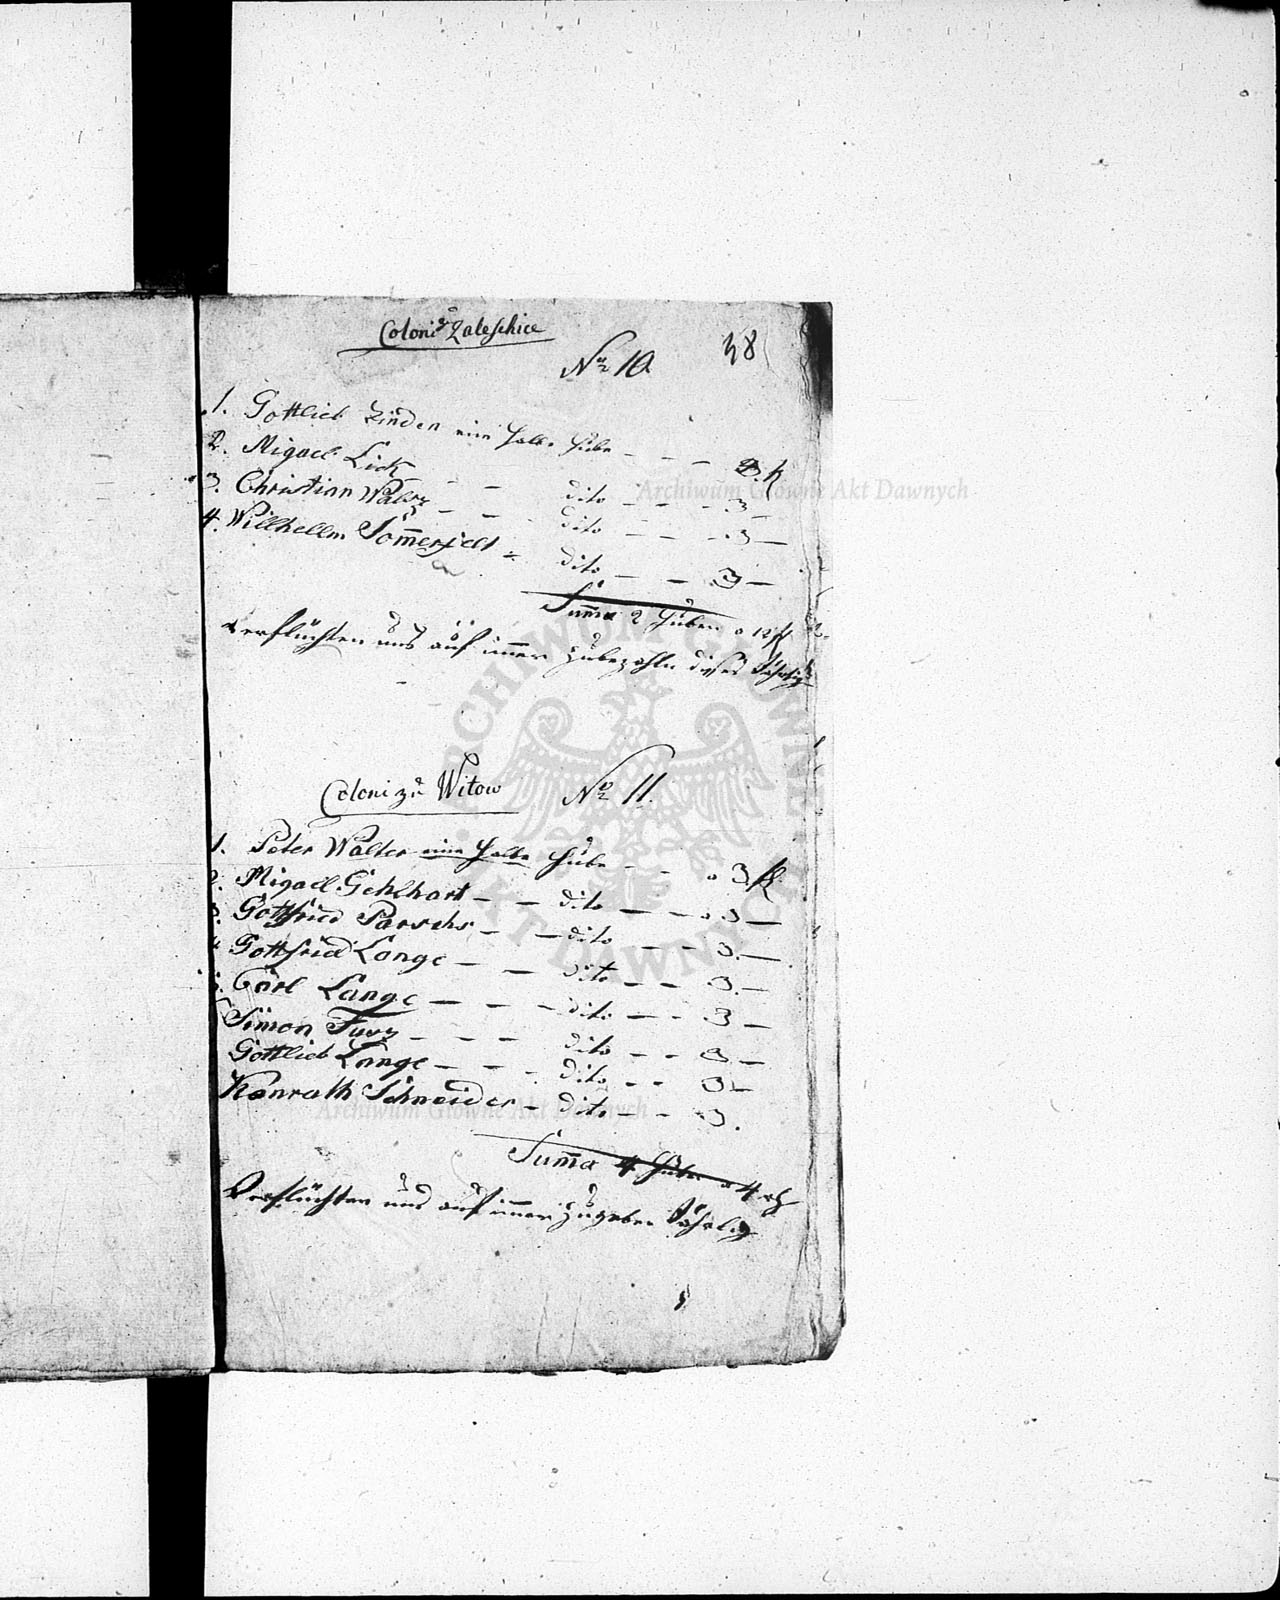 Coloni Zaleschice
No 10. 38
1. Gottlieb Linden eine halbe Hube - - - 3 f
2. Migael Lick - - - dito - - - 3 -
3. Christian Walz - - - dito - - - 3 -
4. Willhellm Sommerfelt - dito - - 3 -
Summa 2 Huben a 12 f
verflüchten uns auf immer zubezahln dieses Jährlig
Coloni zu Witow No 11.
1. Peter Walter eine halbe Hube - - a 3 f
2. Migaell Gehlhart - - dito - - a 3 -
3. Gottfried Parschs - - dito - - 3. -
4 Gottfried Lange - - dito - - 3. -
5. Carl Lange - - - dito - - 3 -
Simon - - - dito - - 3 -
Gottlieb Lange - - - dito - - 3 -
Konrath Schneider - dito - - 3.
Summa 4 Huben a
Verflüchten uns auf immer zugeben Jährlig
Archiwum Główne Akt Dawnych
Archiwum Główne Akt Dawnych
ARCHIWUM GŁÓWNE AKT DAWNYCH